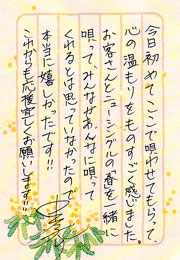 今日初めてここで唄わせてもらって、
心の温もりをものすっごく感じました。
お客さんとニューシングルの「春を一緒に
唄って、みんながあんなに唄って
くれるとは思っていなかったので
本当に嬉しかったです!!
これからも応援宜しくお願いします!!